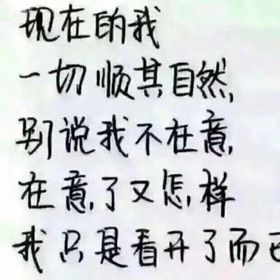 现在的我
一切顺其自然,
别说我不在意,
在意,了又怎,样
我只是看开了而已